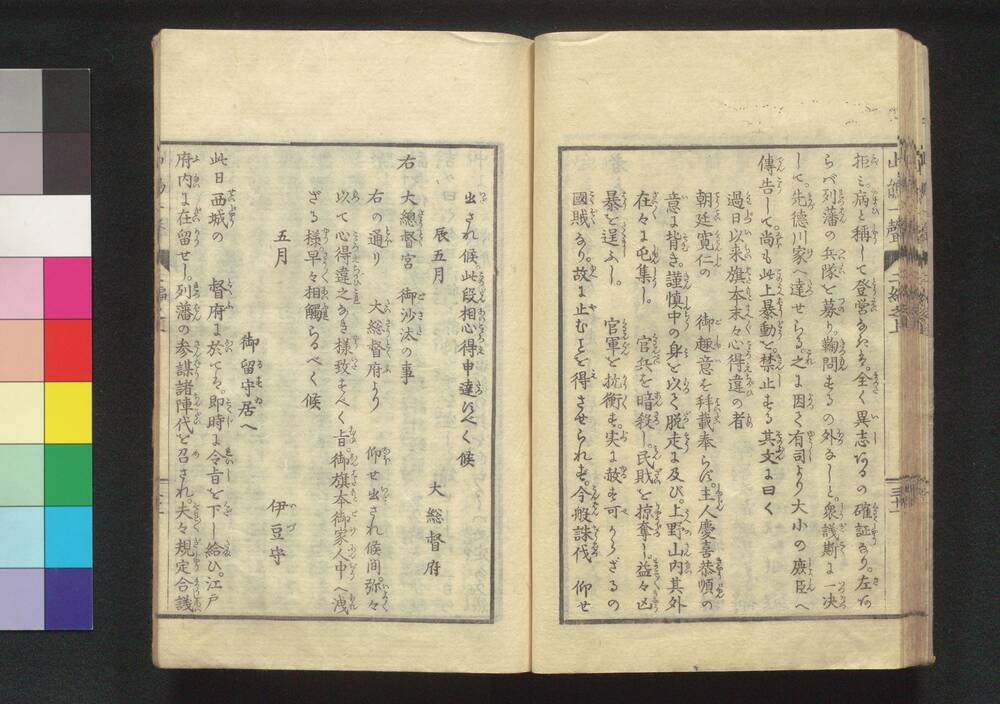 拒ミ病と称して登営なさゞる。全く異志あるの確証なり。左あ
らバ列藩の兵隊を募り。鞠問するの外なしと。衆議斯に一决
して。先徳川家へ達せらる。之に因て有司より大小の廃臣へ
傳告して。尚も此上暴動を禁止する其文に曰く
過日以来旗本末々心得違の者
朝廷寛仁の　御趣意を拝載奉らず。主人慶喜恭順の
意に背き。謹慎中の身を以て脱走に及び。上野山内其外
在々に屯集し。官兵を暗殺し。民財を掠奪し。益々凶
暴を逞ふし。官軍を抗衡す。実に赦す可からざるの
國賊なり。故に止むことを得させられず。今般誅伐　仰せ
出され候此段相心得申達すべく候
辰五月　　大総督府
右　大總督宮　御沙汰の事
右の通り　大総督府より　仰せ出され候間。弥々
以て心得違之なき様致すべく旨御旗本御家人中へ洩
ざる様早々相觸らるべく候
五月　　伊豆守
御留守居へ
此日西城の　督府に於ても。即時に令旨を下し給ひ。江戸
府内に在留せし。列藩の参謀諸陣代を召され。夫々規定合議